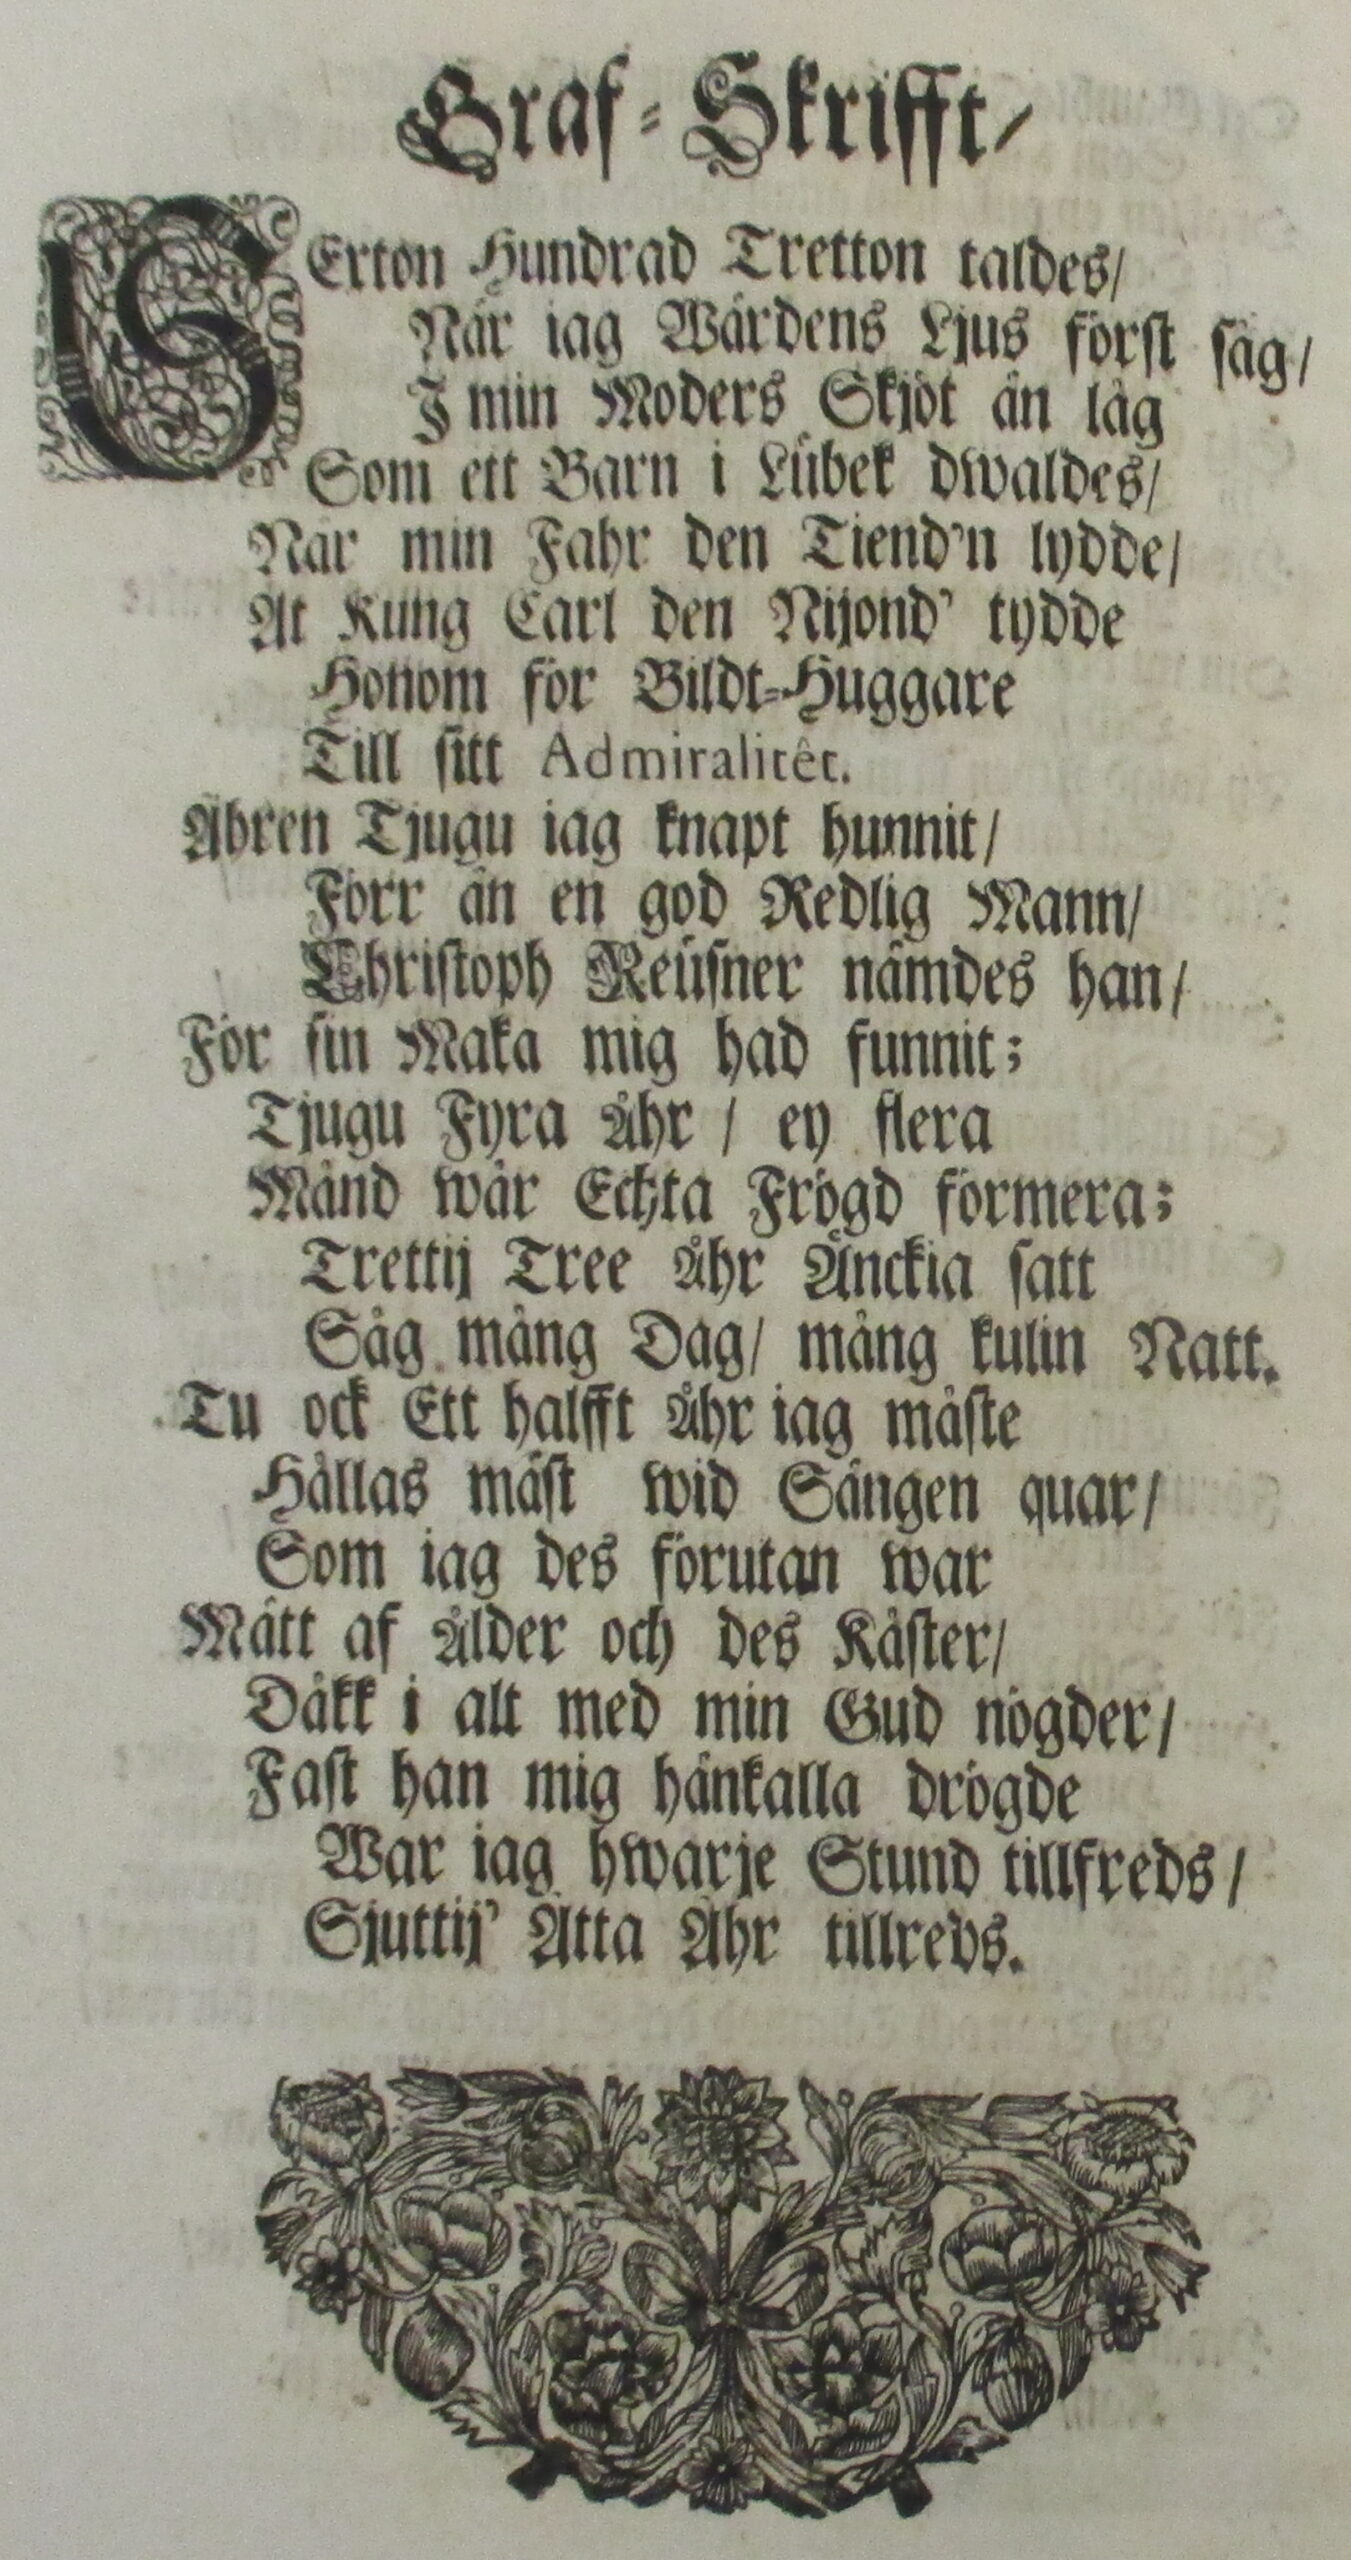 Graf-Skrifft/
SErton Hundrad Tretton taldes/
När iag Wärdens Ljus först såg/
I min Moders Skjöt än låg
Som ett Barn i Lübek dwaldes/
När min Fahr den Tiend'n lydde/
At Kung Carl den Nijond' tydde
Honom för Bildt-Huggare
Till sitt Admiralitêt.
Åhren Tjugu iag knapt hunnit/
Förr än en god Redlig Mann/
Christoph Reüsner nämdes han/
För sin Maka mig had funnit;
Tjugu Fyra Åhr / ey flera
Månd wår Echta Frögd formera;
Trettij Tree Åhr Änckia satt
Såg mång Dag/ mång kulin Natt.
Tu ock Ett halfft Åhr iag måste
Hållas mäst wid Sängen quar/
Som iag des förutan war
Mätt af Ålder och des Kåster/
Dåkk i alt med min Gud nögder/
Fast han mig hänkalla drögde
War iag hwarje Stund tillfreds/
Sjuttij' Åtta Åhr tillreds.